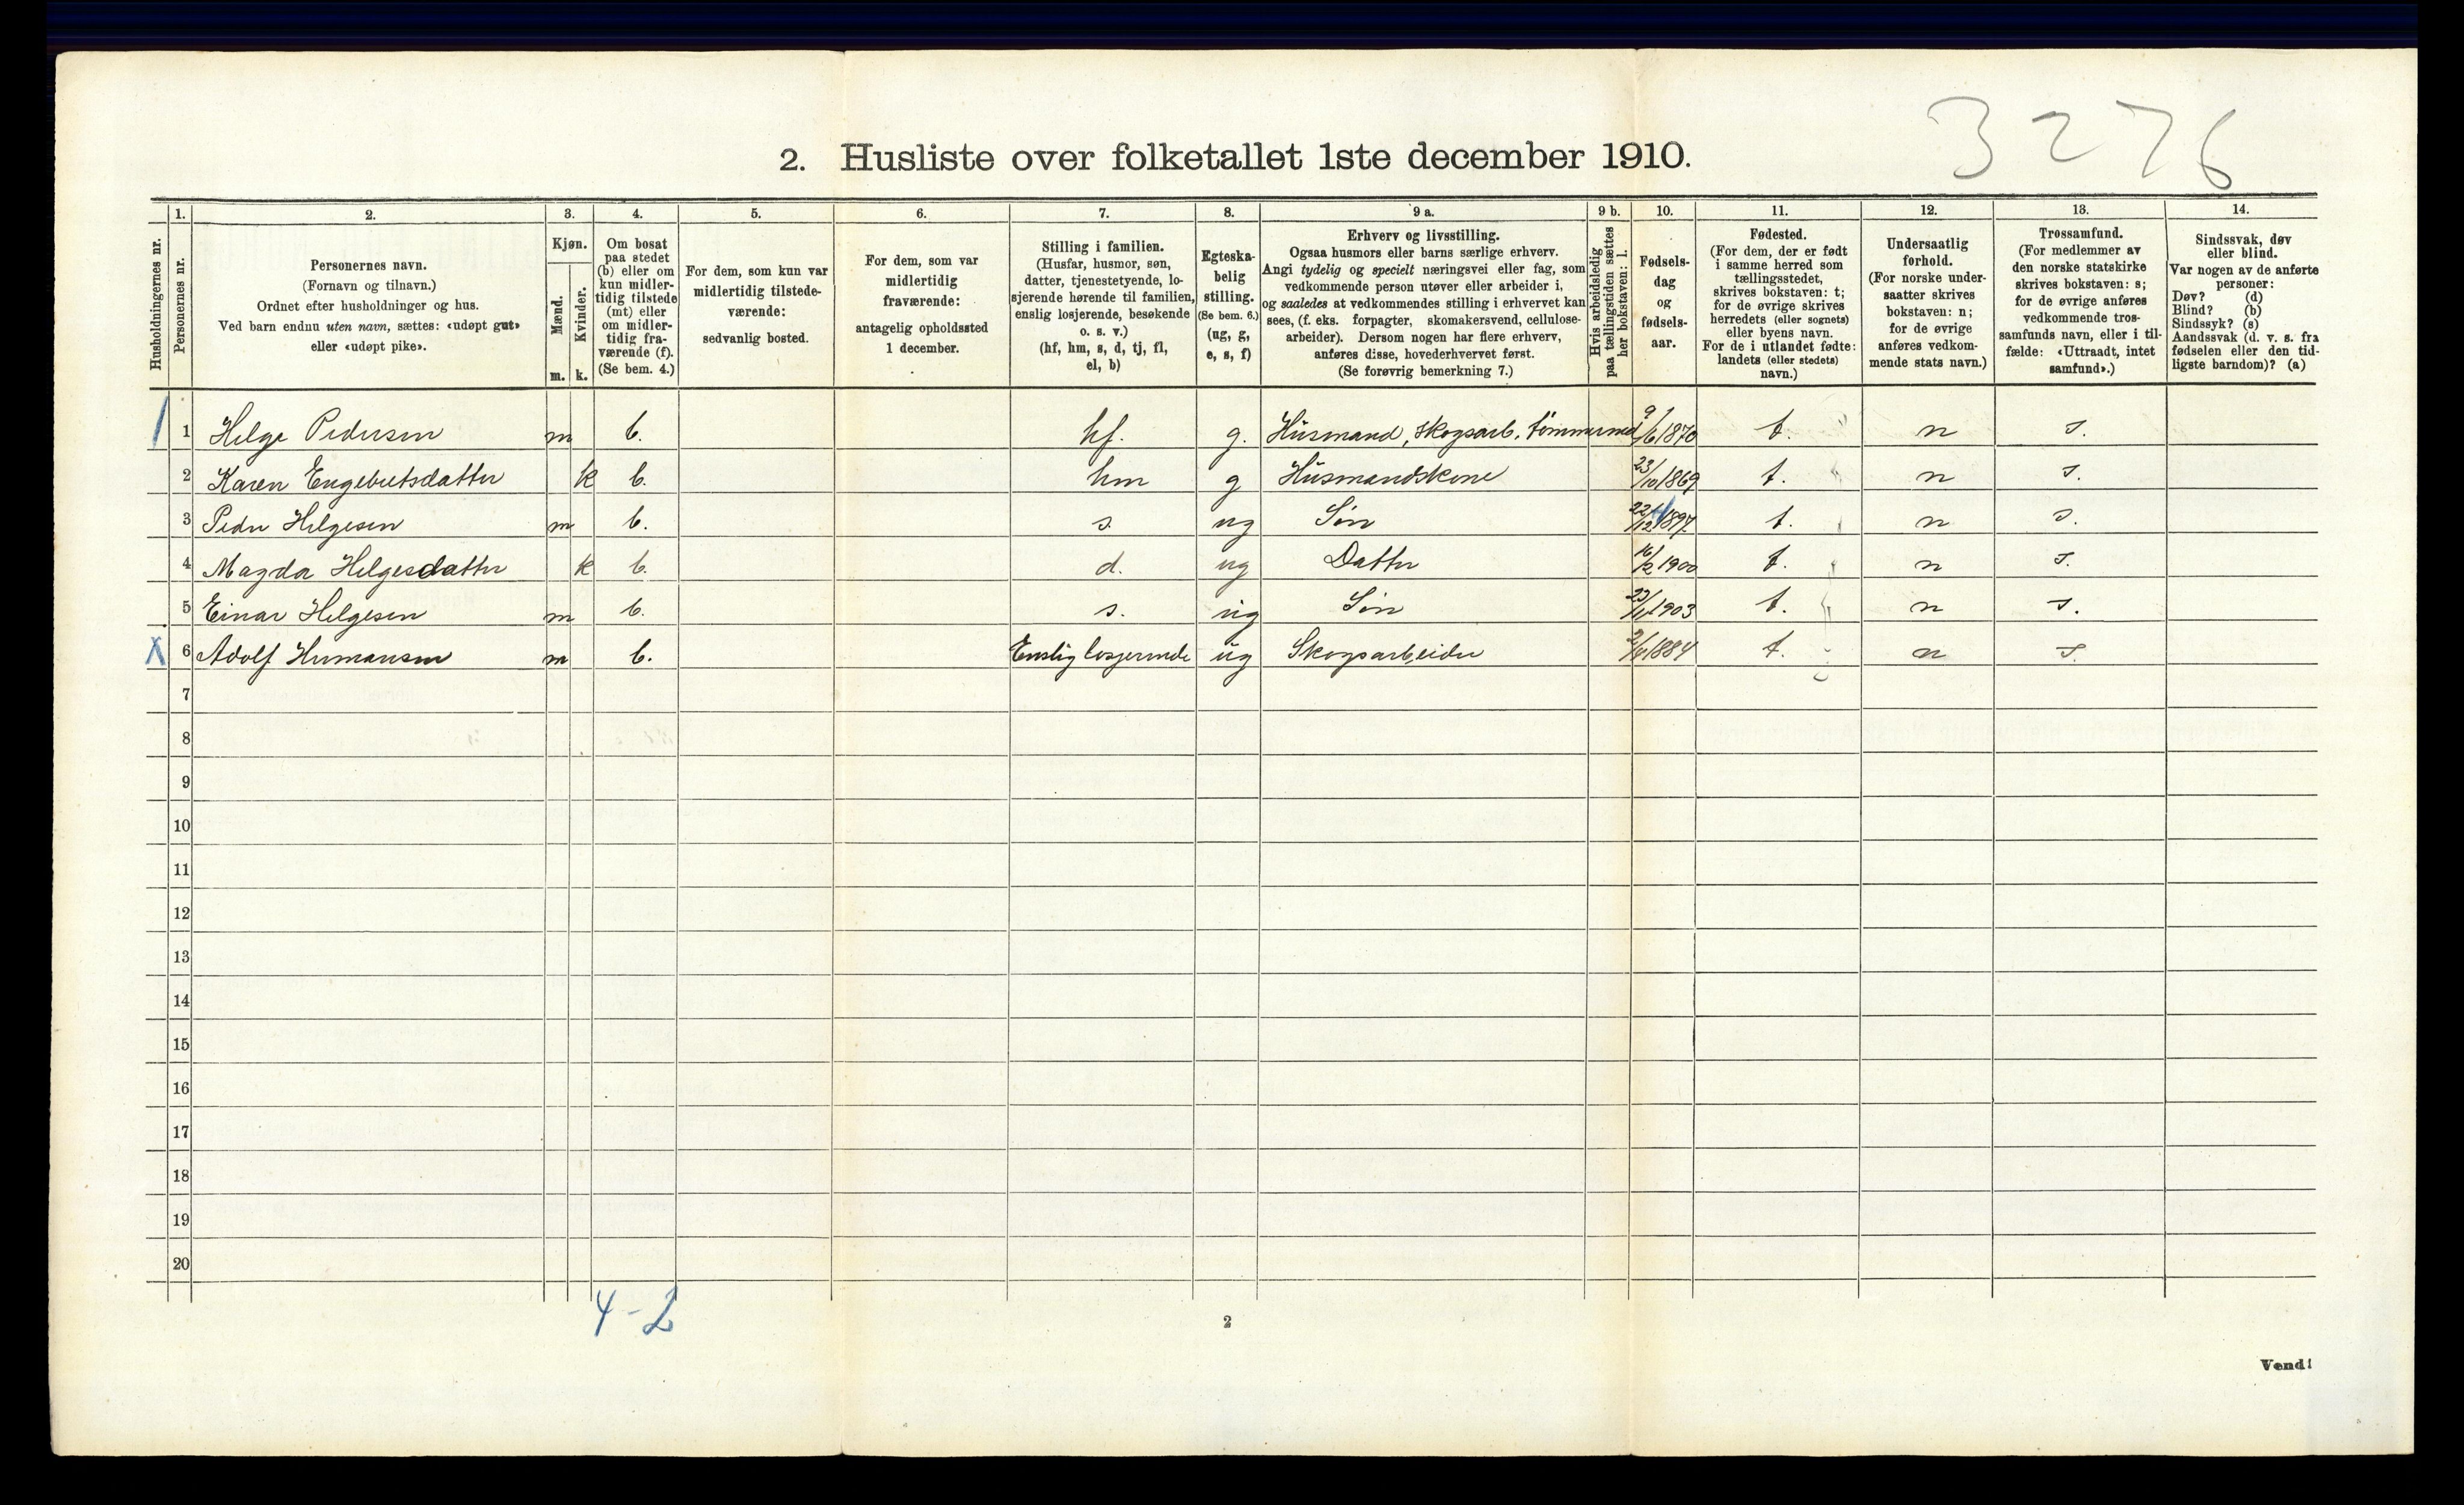 3276
2. Husliste over folketallet 1ste december 1910.
1. 2. 3. 4. 5. 6. 7. 8. 9 a. 9 b. 10. 11. 12. 13. 14.
Husholdningernes nr.
Personernes nr.
Personernes navn.
(Fornavn og tilnavn.)
Ordnet efter husholdninger og hus.
Ved barn endnu uten navn, sættes: «udøpt gut»
eller «udøpt pike».
Kjøn.
Mænd.
Kvinder.
m. k.
Om bosat
paa stedet
(b) eller om
kun midler-
tidig tilstede
(mt) eller
om midler-
tidig fra-
værende (f).
(Se bem. 4.)
For dem, som kun var
midlertidig tilstede-
værende:
sedvanlig bosted.
For dem, som var
midlertidig
fraværende:
antagelig opholdssted
1 december.
Stilling i familien.
(Husfar, husmor, søn,
datter, tjenestetyende, lo-
sjerende hørende til familien,
enslig losjerende, besøkende
o. s. v.)
(hf, hm, s, d, tj, fl,
el, b)
Egteska-
belig
stilling.
(Se bem. 6.)
(ug, g,
e, s, f)
Erhverv og livsstilling.
Ogsaa husmors eller barns særlige erhverv.
Angi tydelig og specielt næringsvei eller fag, som
vedkommende person utøver eller arbeider i,
og saaledes at vedkommendes stilling i erhvervet kan
sees, (f. eks. forpagter, skomakersvend, cellulose-
arbeider). Dersom nogen har flere erhverv,
anføres disse, hovederhvervet først.
(Se forøvrig bemerkning 7.)
Hvis arbeidsledig
paa tællingstiden sættes
her bokstaven: l.
Fødsels-
dag
og
fødsels-
aar.
Fødested.
(For dem, der er født
i samme herred som
tællingsstedet,
skrives bokstaven: t;
for de øvrige skrives
herredets (eller sognets)
eller byens navn.
For de i utlandet fødte:
landets (eller stedets)
navn.)
Undersaatlig
forhold.
(For norske under-
saatter skrives
bokstaven: n;
for de øvrige
anføres vedkom-
mende stats navn.)
Trossamfund.
(For medlemmer av
den norske statskirke
skrives bokstaven: s;
for de øvrige anføres
vedkommende tros-
samfunds navn, eller i til-
fælde: «Uttraadt, intet
samfund».)
Sindssvak, døv
eller blind.
Var nogen av de anførte
personer:
Døv? (d)
Blind? (b)
Sindssyk? (s)
Aandssvak (d. v. s. fra
fødselen eller den tid-
ligste barndom)? (a)
1 Helge Pedersen m b. hf. g. Husmand, skogsarb. tømmermd 9/6 1870 t. n s.
2 Karen Engebretsdatter k b. hm g Husmandskone 23/10 1869 t. n s.
3 Peder Helgesen m b. s. ug Søn 22/12 1897 t. n s.
4 Magda Helgesdatter k b. d. ug Datter 16/2 1900 t. n s.
5 Einar Helgesen m b. s. ug Søn 1903 t. n s.
X 6 Adolf Hermansen m b. Enslig losjerende ug Skogsarbeider 1884 t. n s.
7
8
9
10
11
12
13
14
15
16
17
18
19
20
4 - 2
2
Vend!